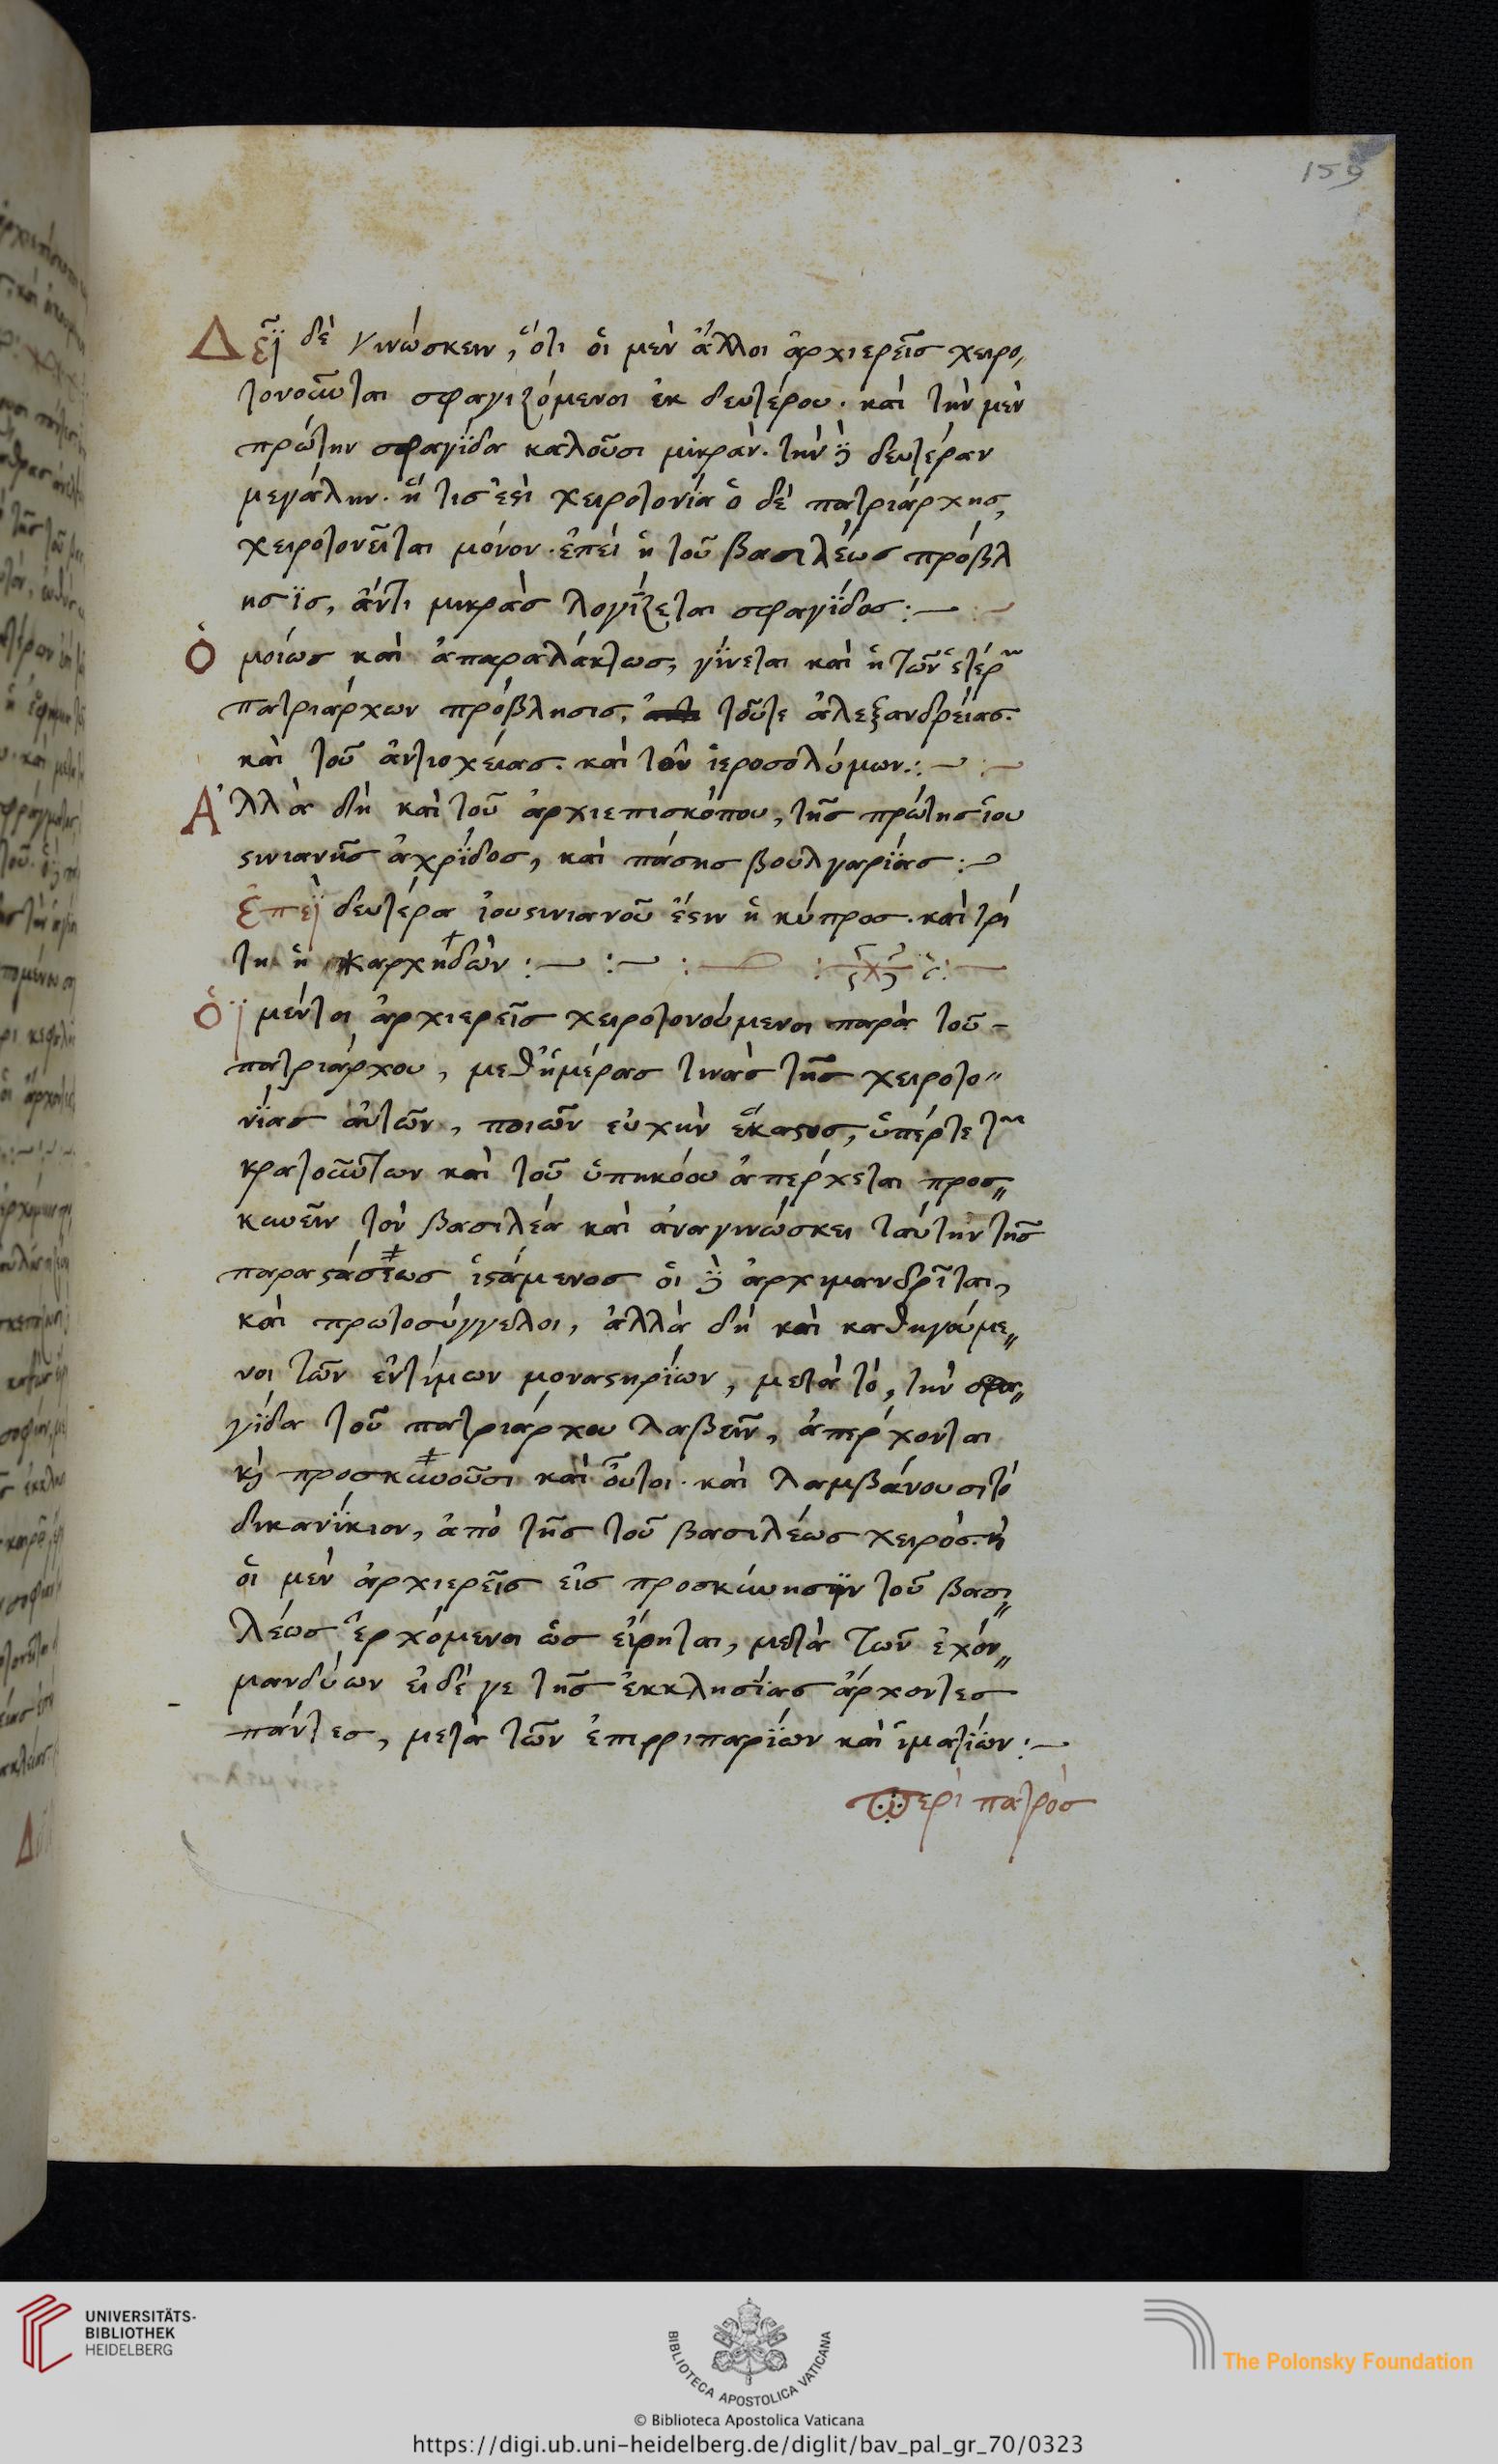 159
Δεῖ δὲ γινώσκειν, ὅτι οἱ μὲν ἄλλοι ἀρχιερεῖς χειρο,
τονοῦνται σφραγιζόμενοι ἐκ δευτέρου. καὶ τὴν μὲν
πρώτην σφραγῖδα καλοῦσι μικρὰν. τὴν δὲ δευτέραν
μεγάλην. ἥ τις ἐστὶ χειροτονία ὁ δὲ πατριάρχης,
χειροτονεῖται μόνον. ἐπεὶ ἡ τοῦ βασιλέως πρόβλ
ησϊς, ἀντὶ μικρᾶς λογίζεται σφραγίδος:—
Ὁμοίως καὶ ἀπαραλάκτως, γίνεται καὶ ἡ τῶν ἑτέρων
πατριάρχων πρόβλησις, τοῦτε ἀλεξανδρείας.
καὶ τοῦ ἀντιοχείας. καὶ τοῦ ἱεροσολύμων.:—
Ἀλλὰ δὴ καὶ τοῦ ἀρχιεπισκόπου, τῆς πρώτης ἰου
στινιανῆς ἀχρίδος, καὶ πάσης βουλγαρίας:—
Ἐπεὶ δευτέρα ἰουστινιανοῦ ἔστιν ἡ κύπρος. καὶ τρί
τη ἡ καρχηδών:— :— :—
Οἱ μέντοι ἀρχιερεῖς χειροτονούμενοι παρὰ τοῦ-
πατριάρχου, μεθ' ἡμέρας τινὰς τῆς χειροτο"
νίας αὐτῶν, ποιῶν εὐχὴν ἕκαστος, ὑπέρτε τῶν
κρατούντων καὶ τοῦ ὑπηκόου ἀπέρχεται προσ"
κυνεῖν τὸν βασιλέα καὶ ἀναγινώσκει ταύτην τῆς
παραστάσεως ἱστάμενος οἱ δὲ ἀρχιμανδρῖται,
καὶ πρωτοσύγγελοι, ἀλλὰ δὴ καὶ καθηγούμε"
νοι τῶν ἐντίμων μοναστηρίων, μετὰ τὸ, τὴν σφρα"
γίδα τοῦ πατριάρχου λαβεῖν, ἀπέρχονται
κ προσκυνοῦσι καὶ οὗτοι. καὶ λαμβάνουσι τὸ
δικανίκιον, ἀπὸ τῆς τοῦ βασιλέως χειρός. κ
οἱ μὲν ἀρχιερεῖς εἰς προσκύνησϊν τοῦ βασι"
λέως ἐρχόμενοι ὡς εἴρηται, μετὰ τῶν ἐχόν"
μανδύων εἰ δέ γε τῆς ἐκκλησίας ἄρχοντες
πάντες, μετὰ τῶν ἐπιρριπαρίων καὶ ἱματίων:—
Περὶ πατρὸσ
UNIVERSITÄTS-
BIBLIOTHEK
HEIDELBERG
BIBLIOTECA APOSTOLICA VATICANA
The Polonsky Foundation
© Biblioteca Apostolica Vaticana
https://digi.ub.uni-heidelberg.de/diglit/bav_pal_gr_70/0323